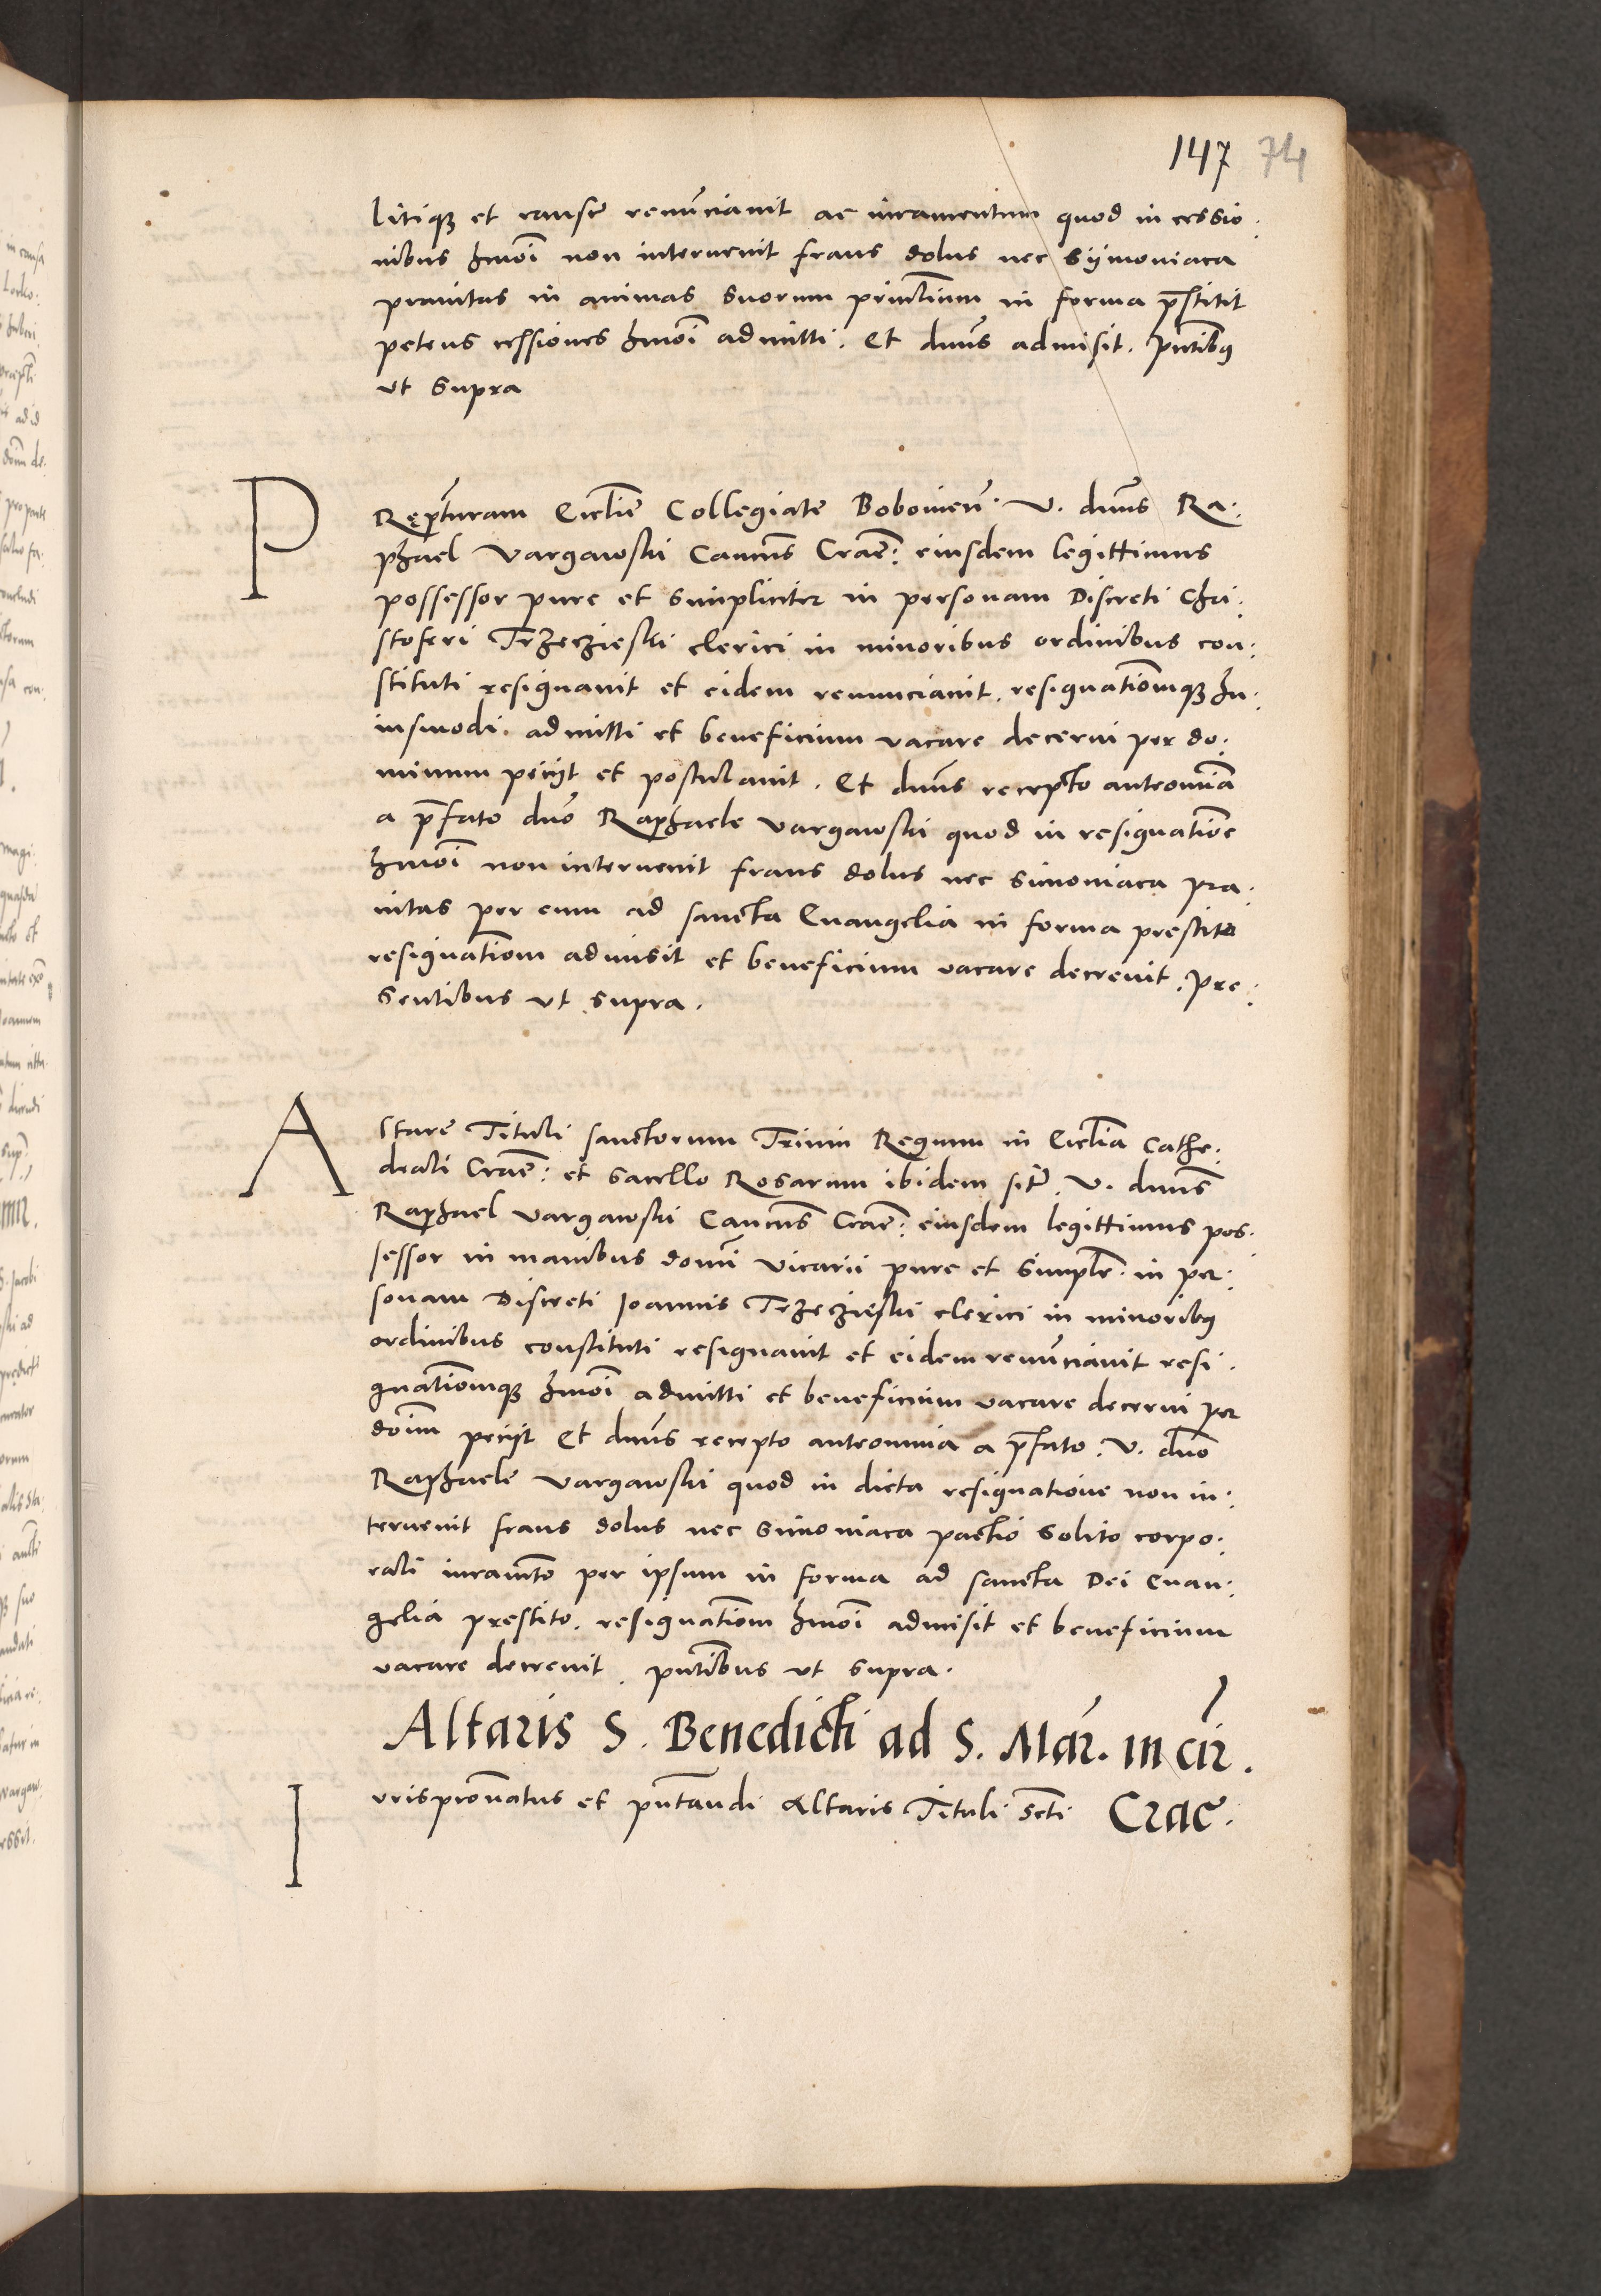 147 74
litiq3 et causę renu͞nciavit ac iuramentum quod in cessio.
nibus hmo͞i non intervenit fraus dolus nec sijmoniaca
pravitas in animas suorum princ͞lium in forma p͞rstitit
petens cessiones hmo͞i admitti. Et dnu͞s admisit. pn͞tibus
ut supra
P
Rep͞turam Eccl͞ie Collegiate Bobovien͞. V. dnu͞s Ra:
phael Vargawski Canni͞s Crac͞: eiusdem legittimus
possessor pure et simpliciter in personam Discreti Chri:
stoferi Trzeczieski clerici in minoribus ordinibus con:
stituti resignavit et eidem renunciavit. resignatio͞mq3 hu:
iusmodi. admitti et beneficium vacare decerni per do:
minum pecijt et postulavit. Et dnu͞s recepto anteomni͞a
a p͞rfato dn͞o Raphaele Vargawski quod in resignatio͞ne
hmo͞i non intervenit fraus dolus nec simoniaca pra:
vitas per eum ad sancta Evangelia in forma prestito
resignatio͞m admisit et beneficium vacare decrevit. Pre:
sentibus ut supra.
A
ltare Tituli sanctorum Trium Regum in Eccl͞ia Cathe:
drali Crac͞: et sacello Rosarum ibidem sit͞u. V. dnu͞s
Raphael Vargawski Canni͞s Crac͞: eiusdem legittimus pos:
sessor in manibus domi͞ni Vicarii pure et simpl͞r. in per:
sonam Discreti Joannis Trzeczieski clerici in minoribus
ordinibus constituti resignavit et eidem renu͞nciavit resi.
gnatio͞mq3 hmo͞i admitti et beneficium vacare decerni per
do͞im pecijt Et dnu͞s recepto anteomnia a p͞rfato. V. dn͞o
Raphaele Vargawski quod in dicta resignatione non in:
tervenit fraus dolus nec simoniaca pactio solito corpo:
rali iuram͞to per ipsum in forma ad sancta Dei Evan:
gelia prestito. resignatio͞m hmo͞i admisit et beneficium
vacare decrevit. pn͞tibus ut supra.
Altaris S. Benedicti ad S. Mar͞. in cir͞.
I
urispro͞natus et pn͞tandi Altaris Tituli Sc͞ti Crac͞.